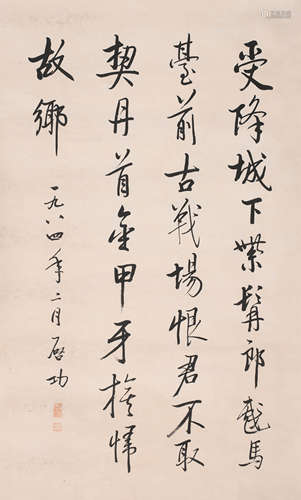 受降城下紫髯郎戲馬
臺前古戰場恨君不取
契丹首金甲牙旗歸
故鄉
一九八四年二月啟功